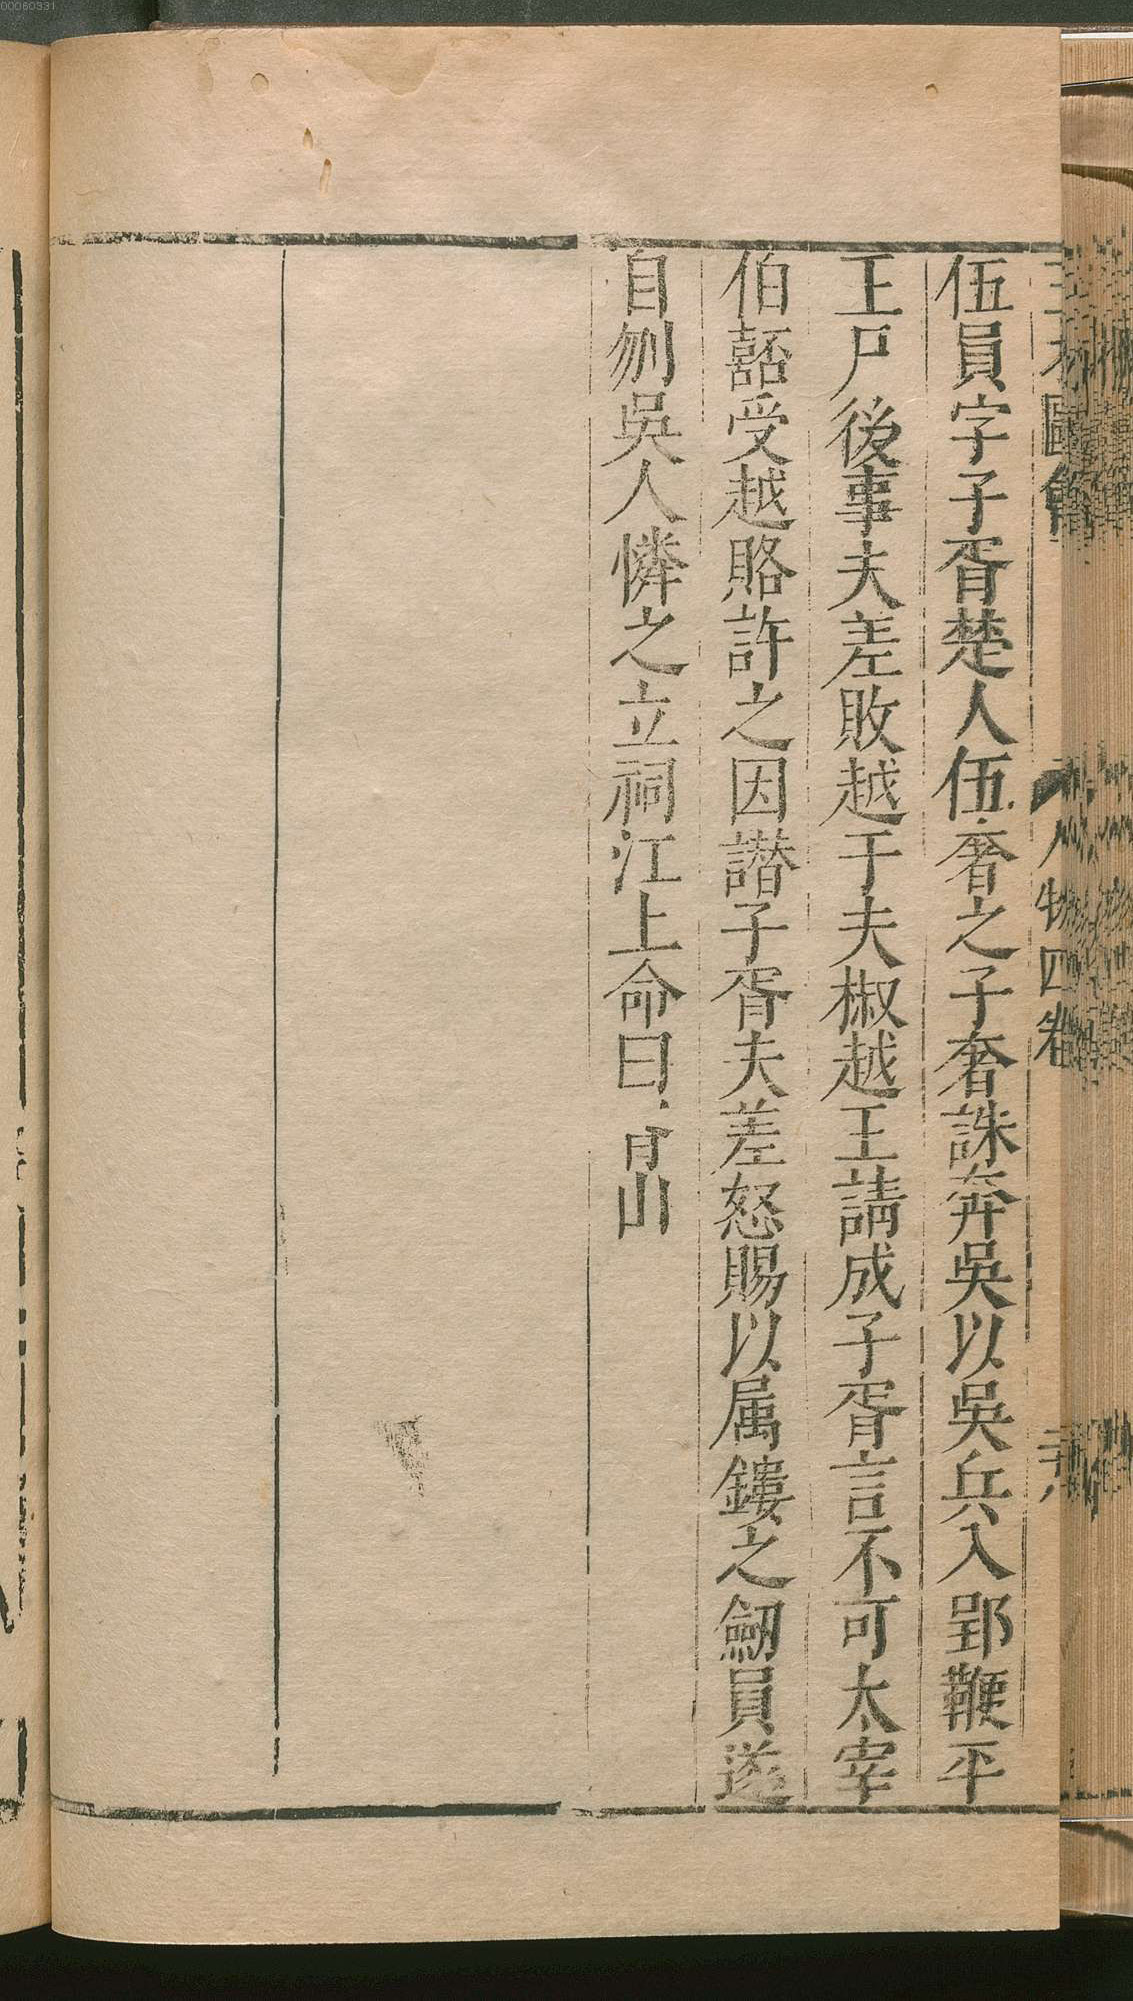 伍員字子胥楚人伍奢之子奢誅奔吳以吳兵入郢鞭平
王尸後事夫差敗越于夫椒越王請成子胥言不可太宰
伯嚭受越賂許之因譖子胥夫差怒賜以属鏤之劒員遂
自刎吳人憐之立祠江上命曰胥山
人物四卷
00060331